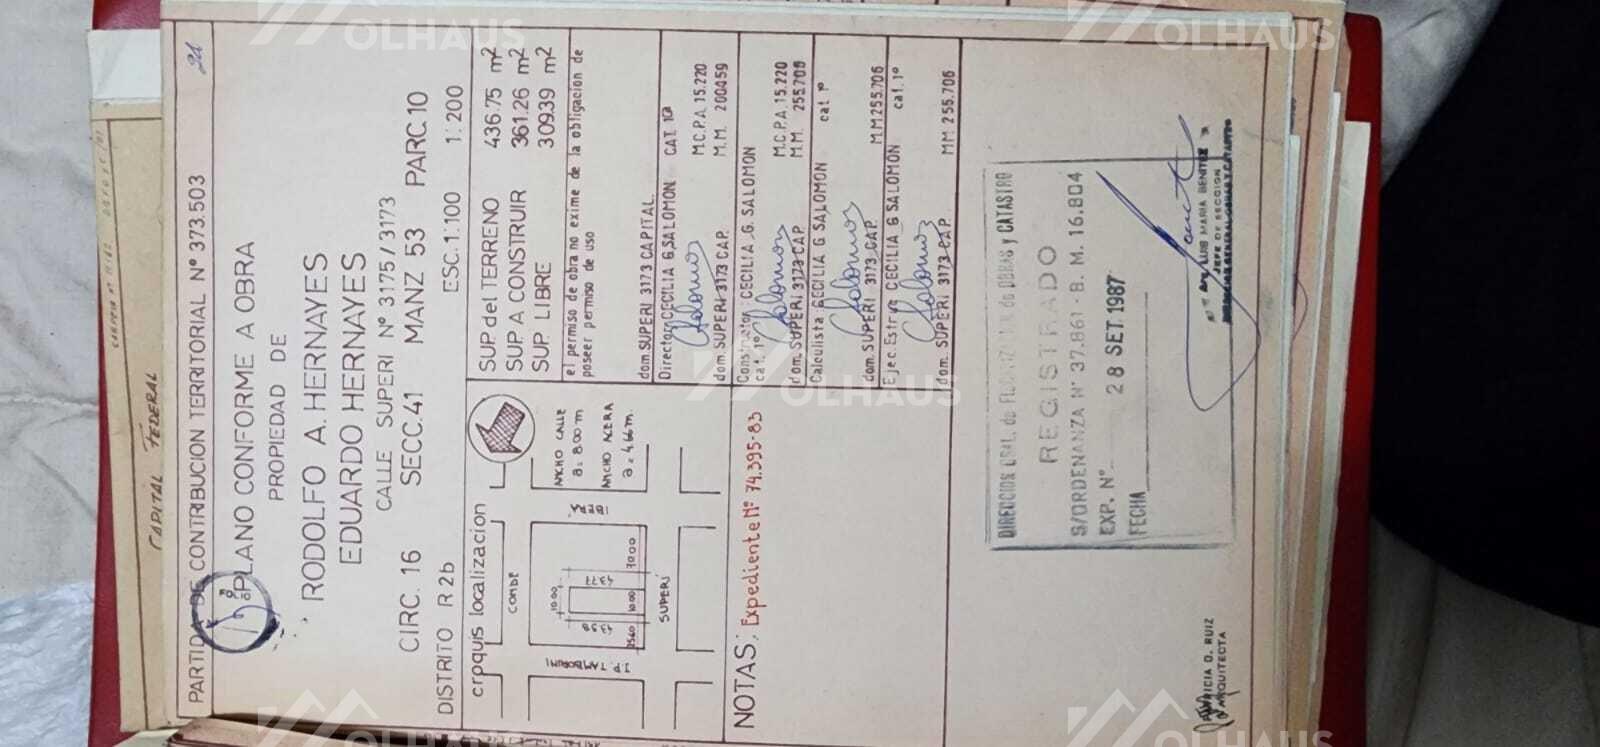 CAPITAL FEDERAL
21
PARTIDA DE CONTRIBUCION TERRITORIAL Nº 373.503
PLANO CONFORME A OBRA
PROPIEDAD DE
RODOLFO A. HERNAYES
EDUARDO HERNAYES
CALLE SUPERI Nº 3175/3173
CIRC. 16 SECC. 41 MANZ 53 PARC. 10
DISTRITO R2b ESC. 1:100 1:200
croquis localizacion
CONDE
IBERA
J.P. TAMBORINI
SUPERÍ
10.00
43.77
43.58
10.00
70.00
ANCHO CALLE
a: 8.00 m
ANCHO ACERA
a: 4.66 m.
SUP. del TERRENO 436.75 m2
SUP A CONSTRUIR 361.26 m2
SUP. LIBRE 309.39 m2
el permiso de obra no exime de la obligacion de
poseer permiso de uso
dom. SUPERI 3173 CAPITAL
Director: CECILIA G. SALOMON CAT. 1ª
M.C.P.A. 15.220
dom. SUPERI 3173 CAP. M.M. 200459
Constructor: CECILIA G. SALOMON
cat. 1º M.C.P.A. 15.220
dom. SUPERI 3173 CAP. M.M. 255.706
Calculista: CECILIA G SALOMON cat. 1º
dom. SUPERI 3173 CAP. M.M 255.706
Ejec. Estruc CECILIA G SALOMON cat. 1º
dom. SUPERI 3173 CAP. MM 255.706
NOTAS: Expediente Nº 74.395-83
DIRECCION GRAL. de FISCALIZACION de OBRAS y CATASTRO
REGISTRADO
S/ORDENANZA Nº 37.861 - B. M. 16.804
EXP. Nº
28 SET. 1987
FECHA
LUIS MARIA BENITEZ
JEFE DE SECCION
PATRICIA D. RUIZ
ARQUITECTA
OLHAUS
OLHAUS
OLHAUS
OLHAUS
OLHAUS